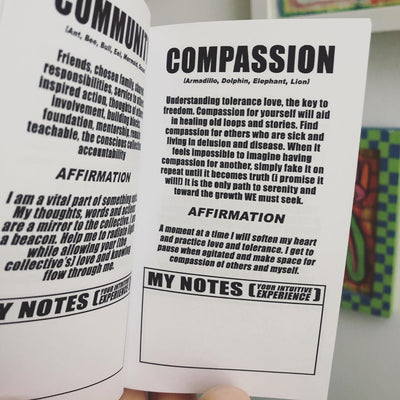 COMMUNIT
(Ant, Bee, Bull, Eel, Mermaid,
Friends, chosen family, shared
responsibilities, service to others
inspired action, thoughts of
involvement, building blocks
foundation, mentorship,
teachable, the conscious collective
accountability
AFFIRMATION
I am a vital part of something
My thoughts, words and actions
are a mirror to the collective, I
a beacon. Help me to radiate
while allowing your (the
collective's) love and knowing
flow through me.
MY NOTES (YOUR INTUITIVE EXPERIENCE)
COMPASSION
(Armadillo, Dolphin, Elephant, Lion)
Understanding tolerance love, the key to
freedom. Compassion for yourself will aid
in healing old loops and stories. Find
compassion for others who are sick and
living in delusion and disease. When it
feels impossible to imagine having
compassion for another, simply fake it on
repeat until it becomes truth (I promise it
will!) It is the only path to serenity and
toward the growth WE must seek.
AFFIRMATION
A moment at a time I will soften my heart
and practice love and tolerance. I get to
pause when agitated and make space for
compassion of others and myself.
MY NOTES (YOUR INTUITIVE EXPERIENCE)